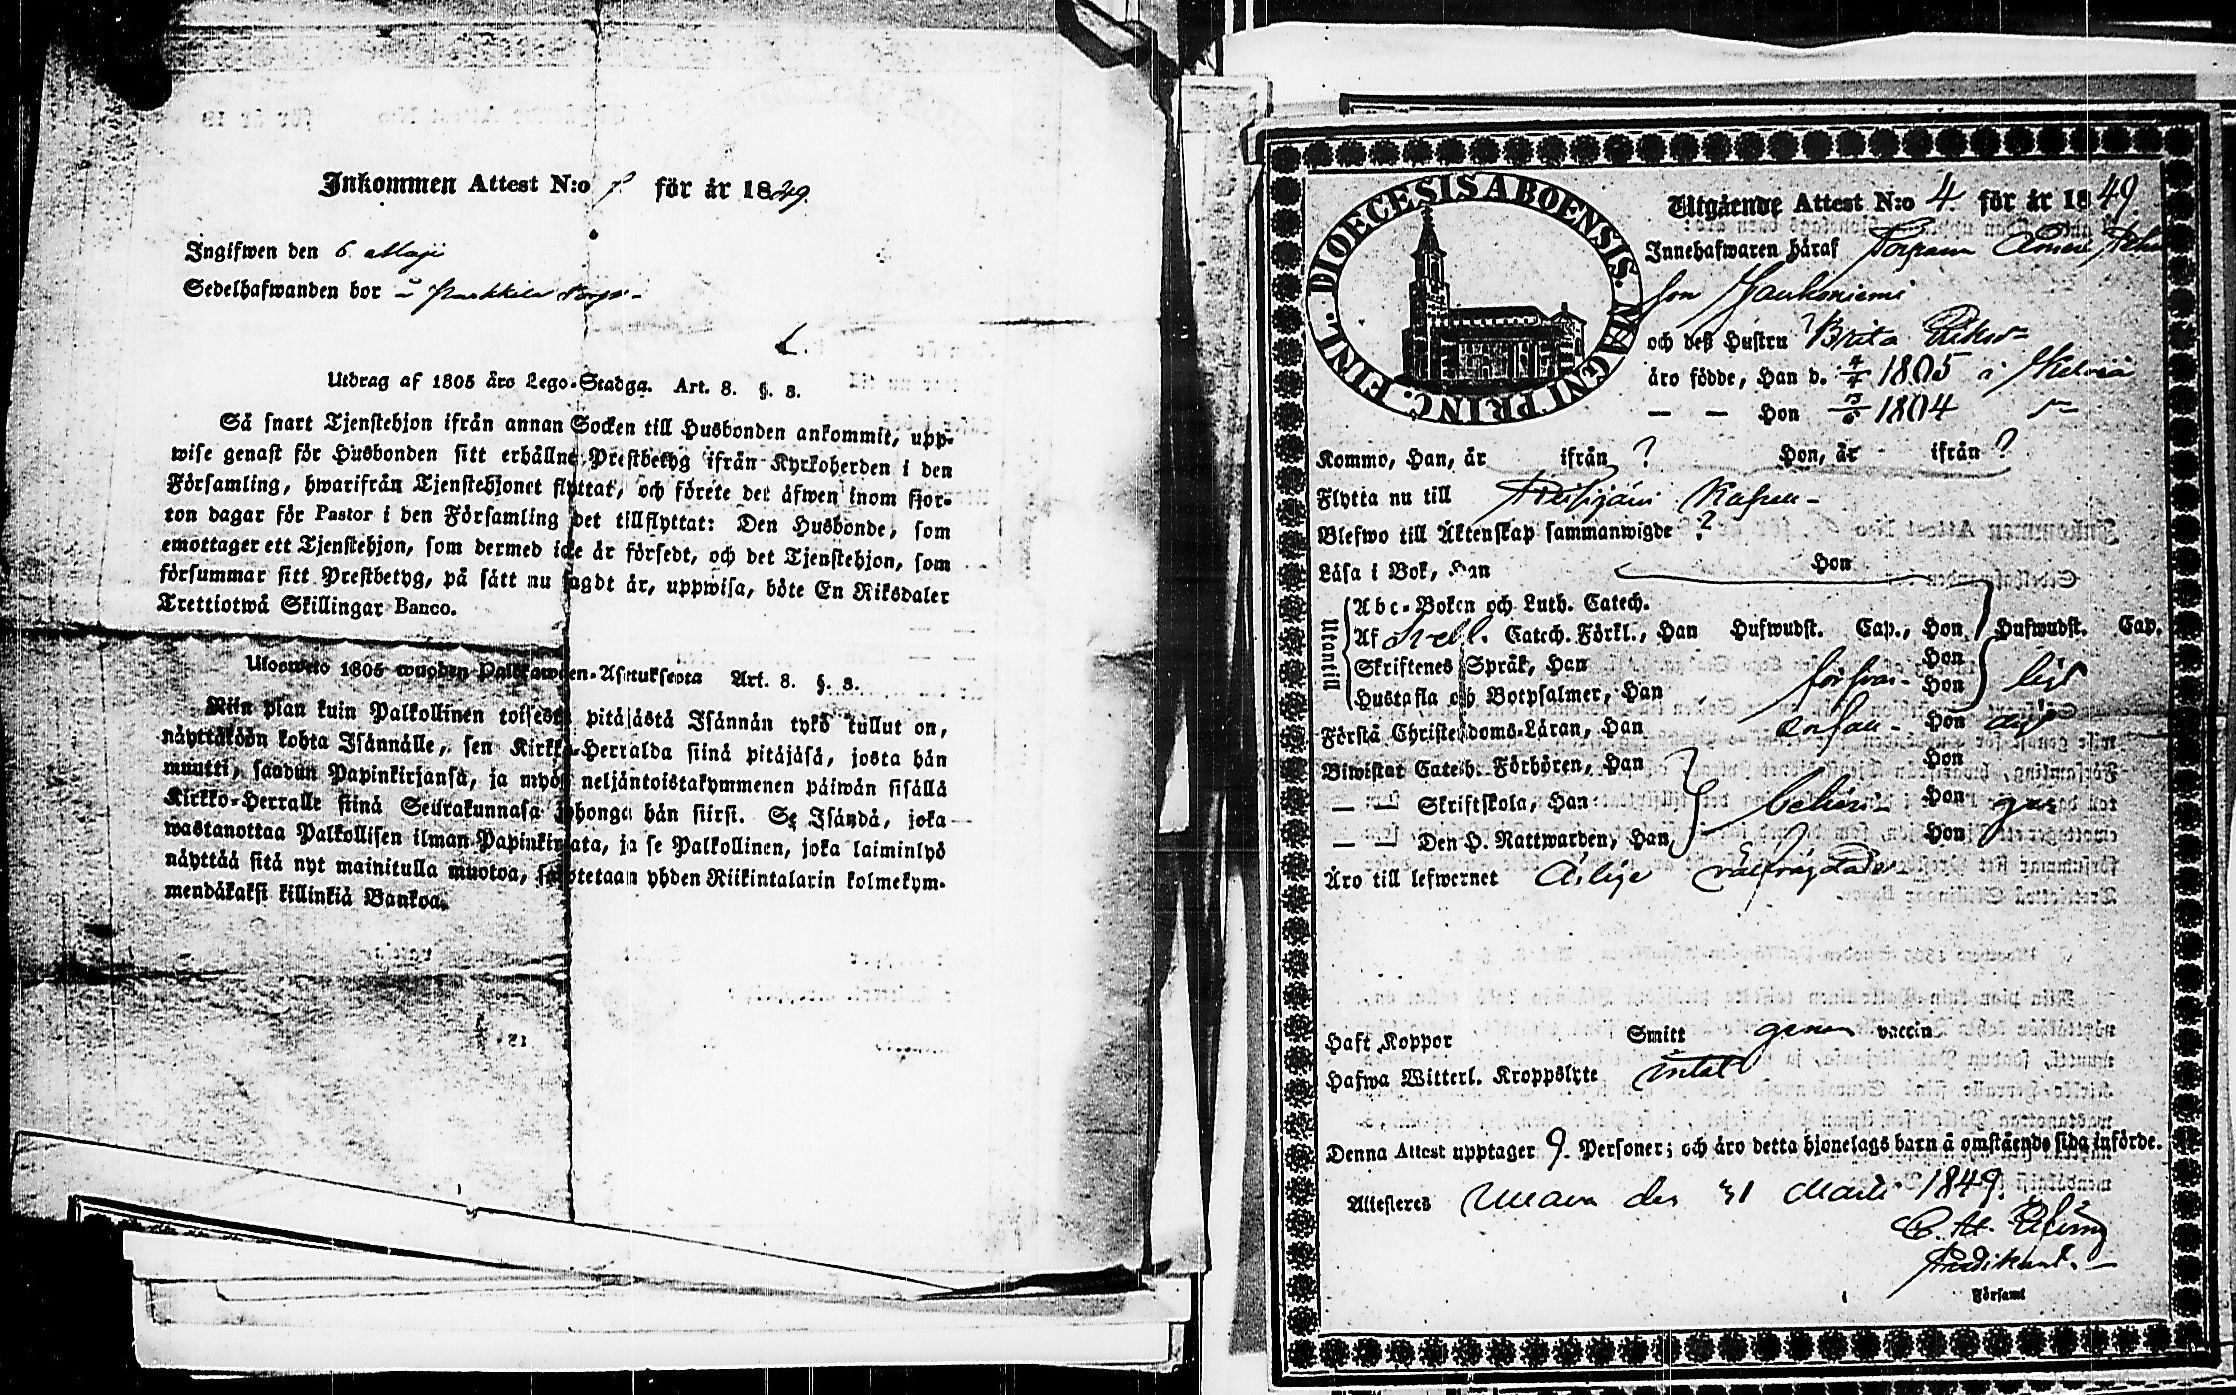 Inkommen Attest N:o för år 1849.
Ingifwen den 6. Maji
Sedelhafwanden bor i
Utdrag af 1805 års Lego-Stadga. Art. 8. §. 3.
Så snart Tjenstehjon ifrån annan Socken till Husbonden ankommit, upp-
wise genast för Husbonden sitt erhållne Prestbetyg ifrån Kyrkoherden i den
Församling, hwarifrån Tjenstehjonet flyttat, och förete det äfwen inom fjor-
ton dagar för Pastor i den Församling det tillflyttat: Den Husbonde, som
emottager ett Tjenstehjon, som dermed icke är försedt, och det Tjenstehjon, som
försummar sitt Prestbetyg, på sätt nu sagdt är, uppwisa, böte En Riksdaler
Trettiotwå Skillingar Banco.
Uloswete 1805 wuoden Palkkawäen-Asetuksesta Art. 8. §. 3.
Niin pian kuin Palkollinen toisesta pitäjästä Isännän tykö tullut on,
näyttäköön kohta Isännälle, sen Kirkko-Herralda siinä pitäjäsä, josta hän
muutti, saadun Papinkirjansa, ja myös neljäntoistakymmenen päiwän sisällä
Kirkko-Herralle siinä Seurakunnasa johonga hän siirsi. Se Isändä, joka
wastanottaa Palkollisen ilman Papinkirjata, ja se Palkollinen, joka laiminlyö
näyttää sitä nyt mainitulla muotoa, sakotetaan yhden Riikintalarin kolmekym-
mendäkaksi killinkiä Bankoa.
DIOECESIS ABOENSIS. MAGNI PRINC. FINL.
Utgående Attest N:o 4 för år 1849.
Innehafwaren häraf
son
och deß Hustru Brita
äro födde, Han d. 4/4 1805 i
— — Hon 1804
Kommo, Han, år ifrån ? Hon, år ifrån ?
Flytta nu till
Blefwo till Äktenskap sammanwigde ?
Läsa i Bok, Han Hon
Utantill
Abc-Boken och Luth. Catech.
Af Svebil. Catech. Förkl., Han Hufwudst. Cap., Hon Hufwudst. Cap.
Skriftenes Språk, Han Hon
Hustafla och Botpsalmer, Han försvar- Hon ligt
Förstå Christendoms-Läran, Han enfal- Hon digt
Biwistat Catech. Förhören, Han Hon
— — Skriftskola, Han behöri- Hon gen
— — Den H. Nattwarden, Han Hon
Äro till lefwernet Ärlige
Haft Koppor Smitt genom vaccin
Hafwa Witterl. Kroppslyte intet
Denna Attest upptager 9. Personer; och äro detta hjonelags barn å omstående sida införde.
Attesteres den 31 Martii 1849.
Predikant.
Församl